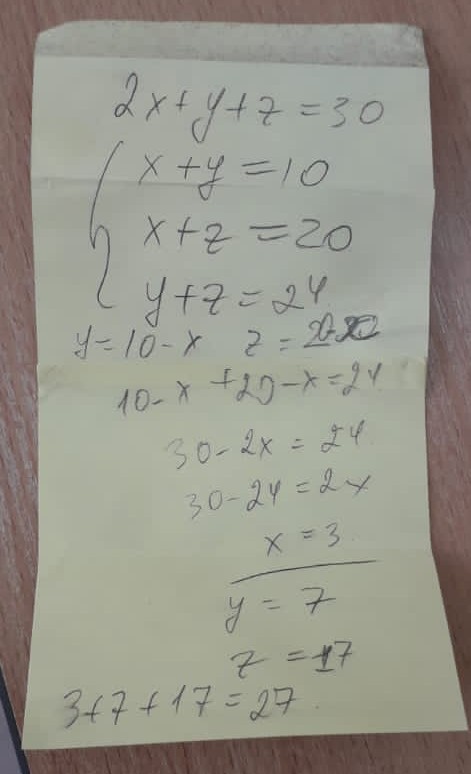 2x+y+z=30
x+y=10
x+z=20
y+z=24
y=10-x z=
10-x+20-x=24
30-2x=24
30-24=2x
x=3
y=7
z=17
3+7+17=27